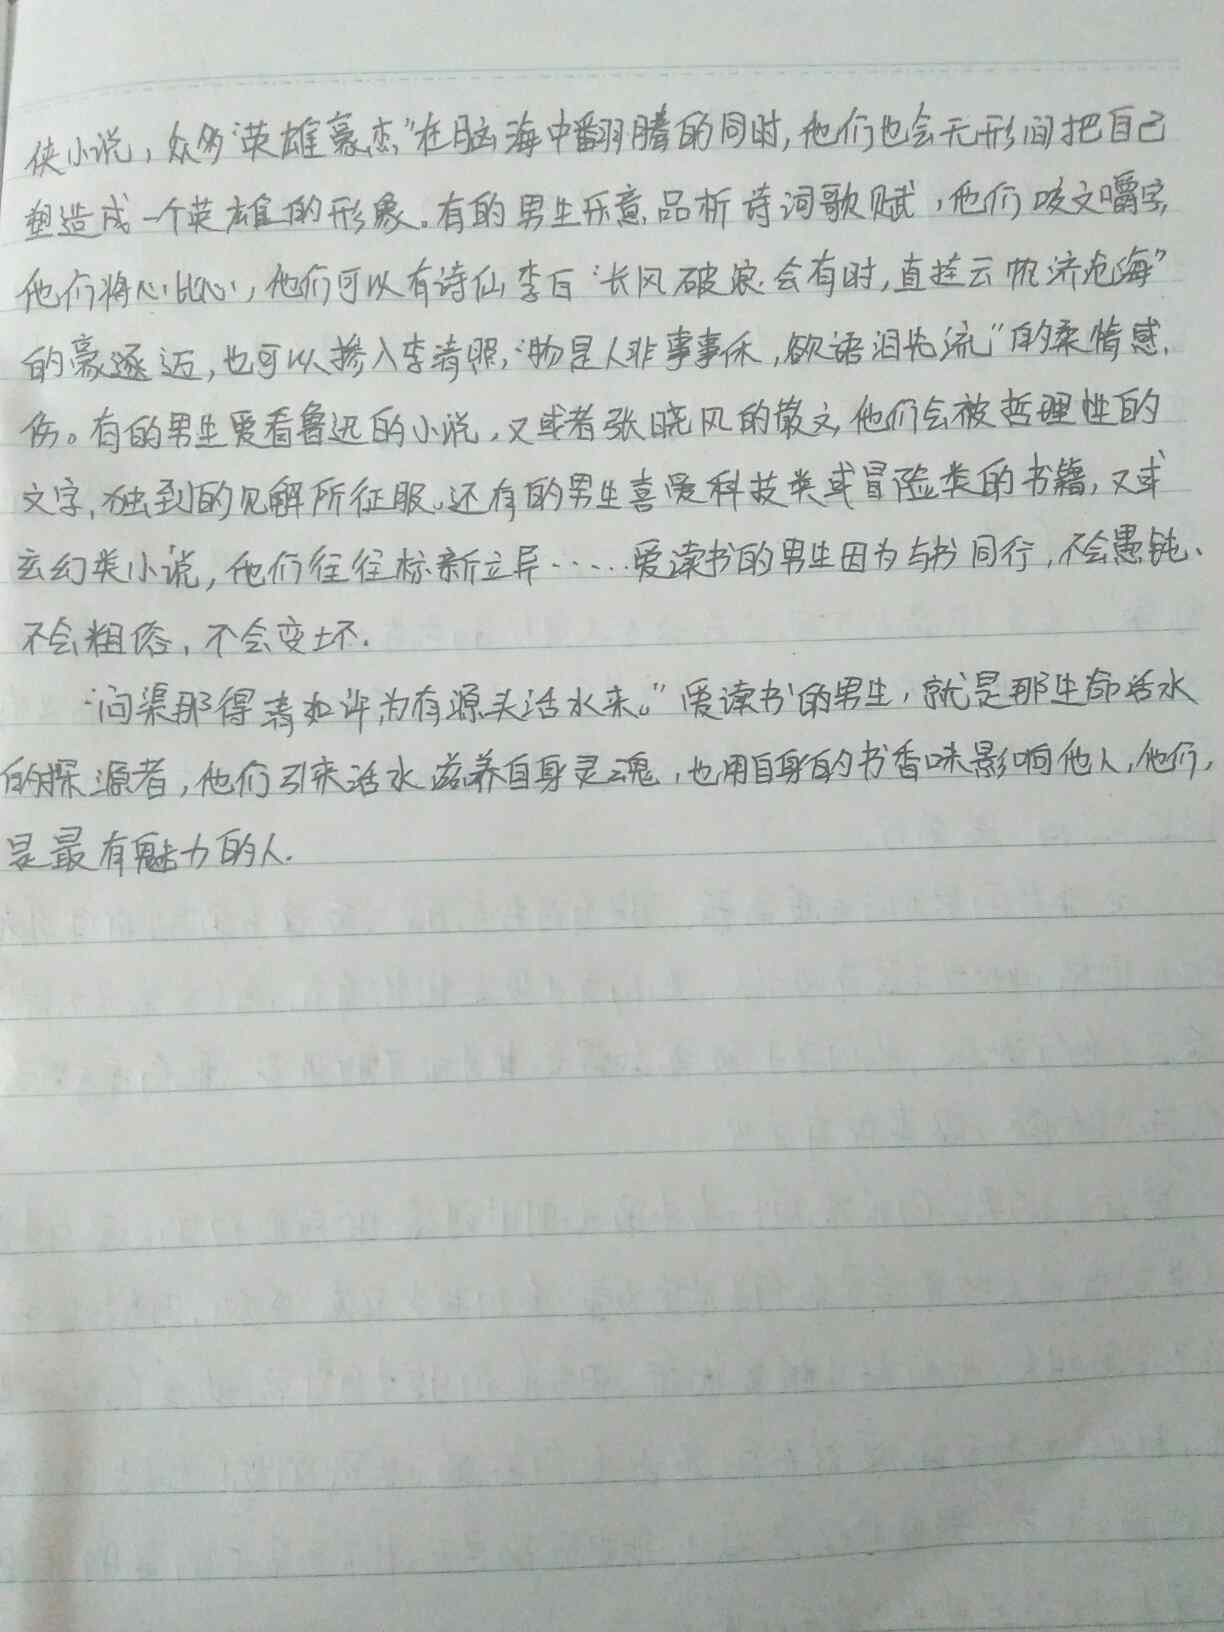 侠小说，众多“英雄豪杰”在脑海中翻腾的同时，他们也会无形间把自己
塑造成一个英雄的形象。有的男生乐意品析诗词歌赋，他们咬文嚼字，
他们将心比心，他们可以有诗仙李白“长风破浪会有时，直挂云帆济沧海”
的豪迈，也可以掺入李清照，“物是人非事事休，欲语泪先流”的柔情感
伤。有的男生爱看鲁迅的小说，又或者张晓风的散文，他们会被哲理性的
文字，独到的见解所征服。还有的男生喜爱科技类或冒险类的书籍，又或
玄幻类小说，他们往往标新立异……爱读书的男生因为与书同行，不会愚钝、
不会粗俗，不会变坏.
“问渠那得清如许，为有源头活水来。”爱读书的男生，就是那生命活水
的探源者，他们引来活水滋养自身灵魂，也用自身的书香味影响他人，他们，
是最有魅力的人.